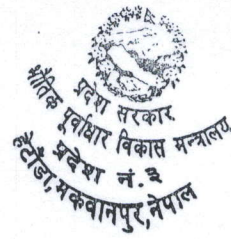 प्रदेश सरकार
भौतिक पूर्वाधार विकास मन्त्रालय
प्रदेश नं. ३
हेटौंडा, मकवानपुर, नेपाल